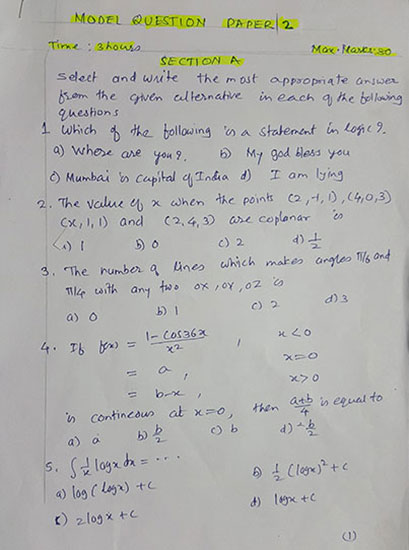 MODEL QUESTION PAPER 2
Time : 3hours Max. Marks:80
SECTION A
select and write the most appropriate answer
from the given alternative in each of the following
questions
1 Which of the following is a statement in logic?.
a) Where are you?. b) My god bless you
c) Mumbai is Capital of India d) I am lying
2. The value of x when the points (2,-1,1),(4,0,3)
(x,1,1) and (2,4,3) are coplanar is
a) 1 b) 0 c) 2 d) 1/2
3. The number of lines which makes angles π/6 and
π/4 with any two ox, oy, oz is
a) 0 b) 1 c) 2 d) 3
4. If f(x) = 1-cos36x / x² , x<0
= a , x=0
= b-x , x>0
is contineous at x=0, then a+b/4 is equal to
a) a b) b/2 c) b d) -b/2
5. ∫ 1/x logx dx = ...
a) log (logx) +c b) 1/2 (logx)² + c
c) 2logx +c d) logx + c
(1)